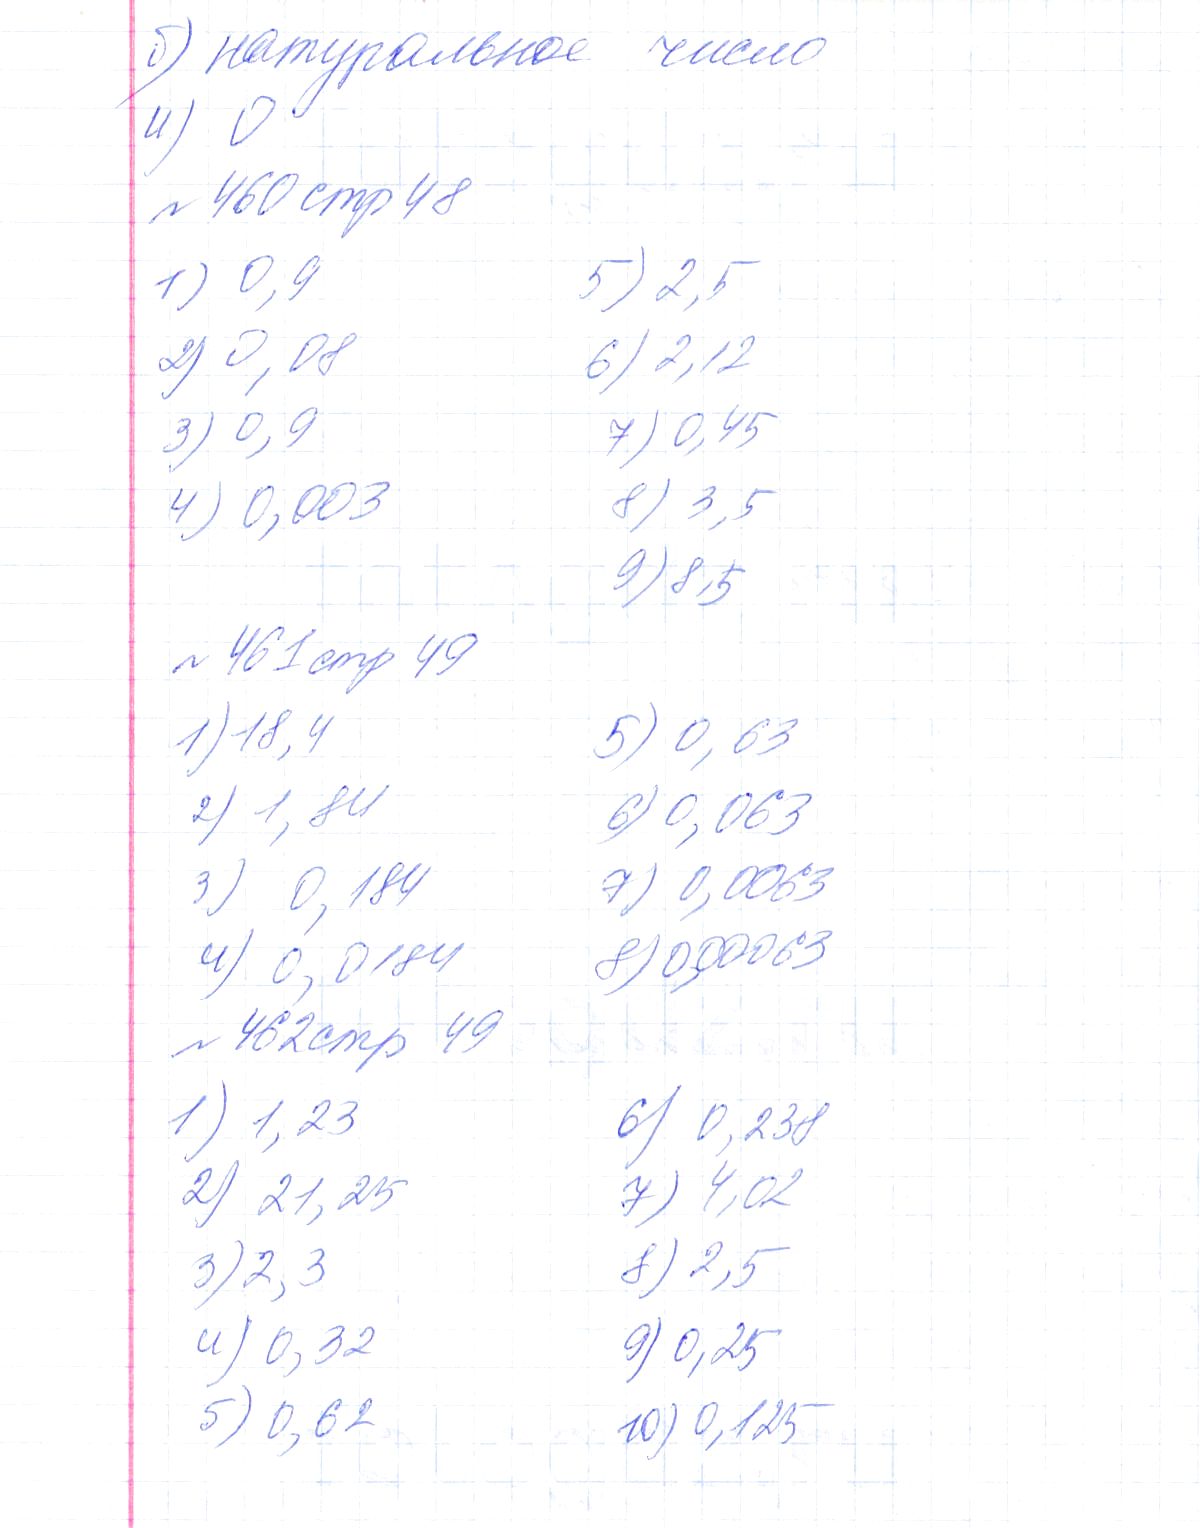 б) натуральное число
4) 0
~ 460 стр 48
1) 0,9 5) 2,5
2) 0,08 6) 2,12
3) 0,9 7) 0,45
4) 0,003 8) 3,5
9) 8,5
~ 461 стр 49
1) 18,4 5) 0,63
2) 1,84 6) 0,063
3) 0,184 7) 0,0063
4) 0,0184 8) 0,00063
~ 462 стр 49
1) 1,23 6) 0,238
2) 21,25 7) 4,02
3) 2,3 8) 2,5
4) 0,32 9) 0,25
5) 0,62 10) 0,125